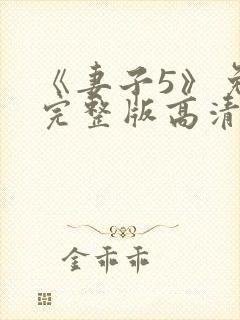 《妻子5》免
完整版高清
金乖乖